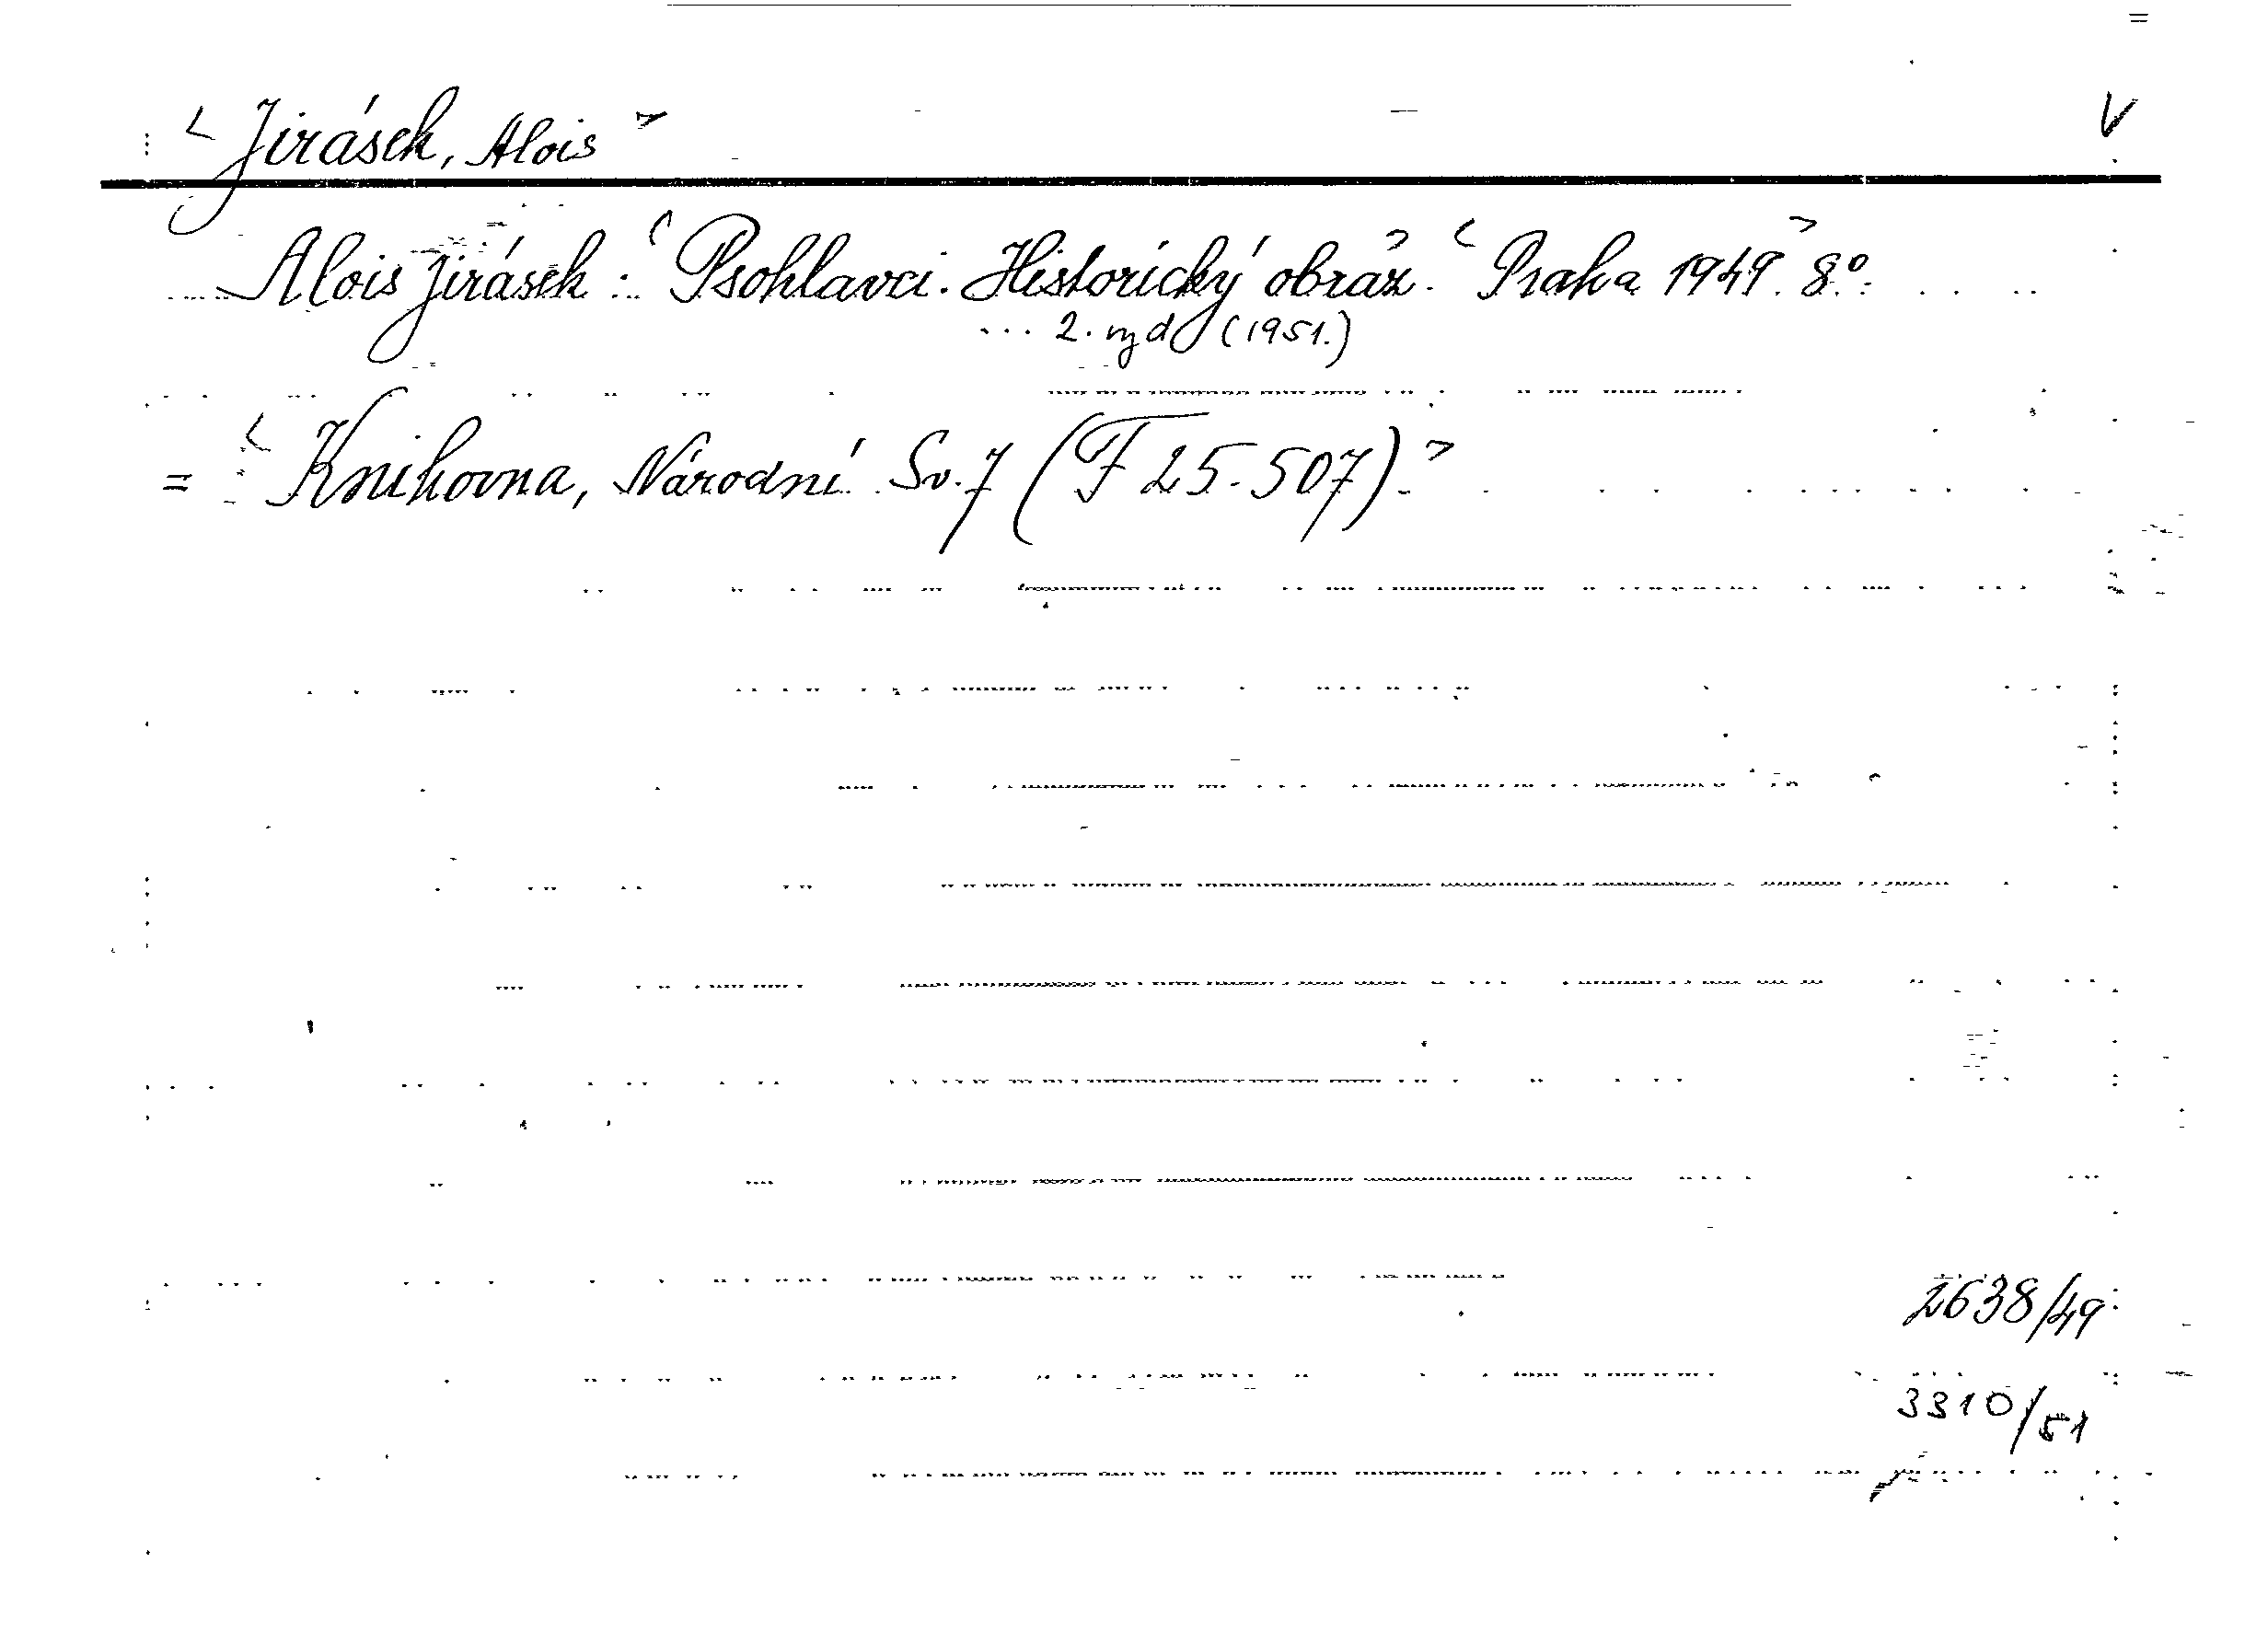 <Jirásek, Alois> V
Alois Jirásek: <Psohlavci. Historický obraz.> <Praha 1949.> 8º.
... 2. vyd. (1951.)
= <Knihovna, Národní Sv. 7 (F 25.507).>
2638/49
3310/51